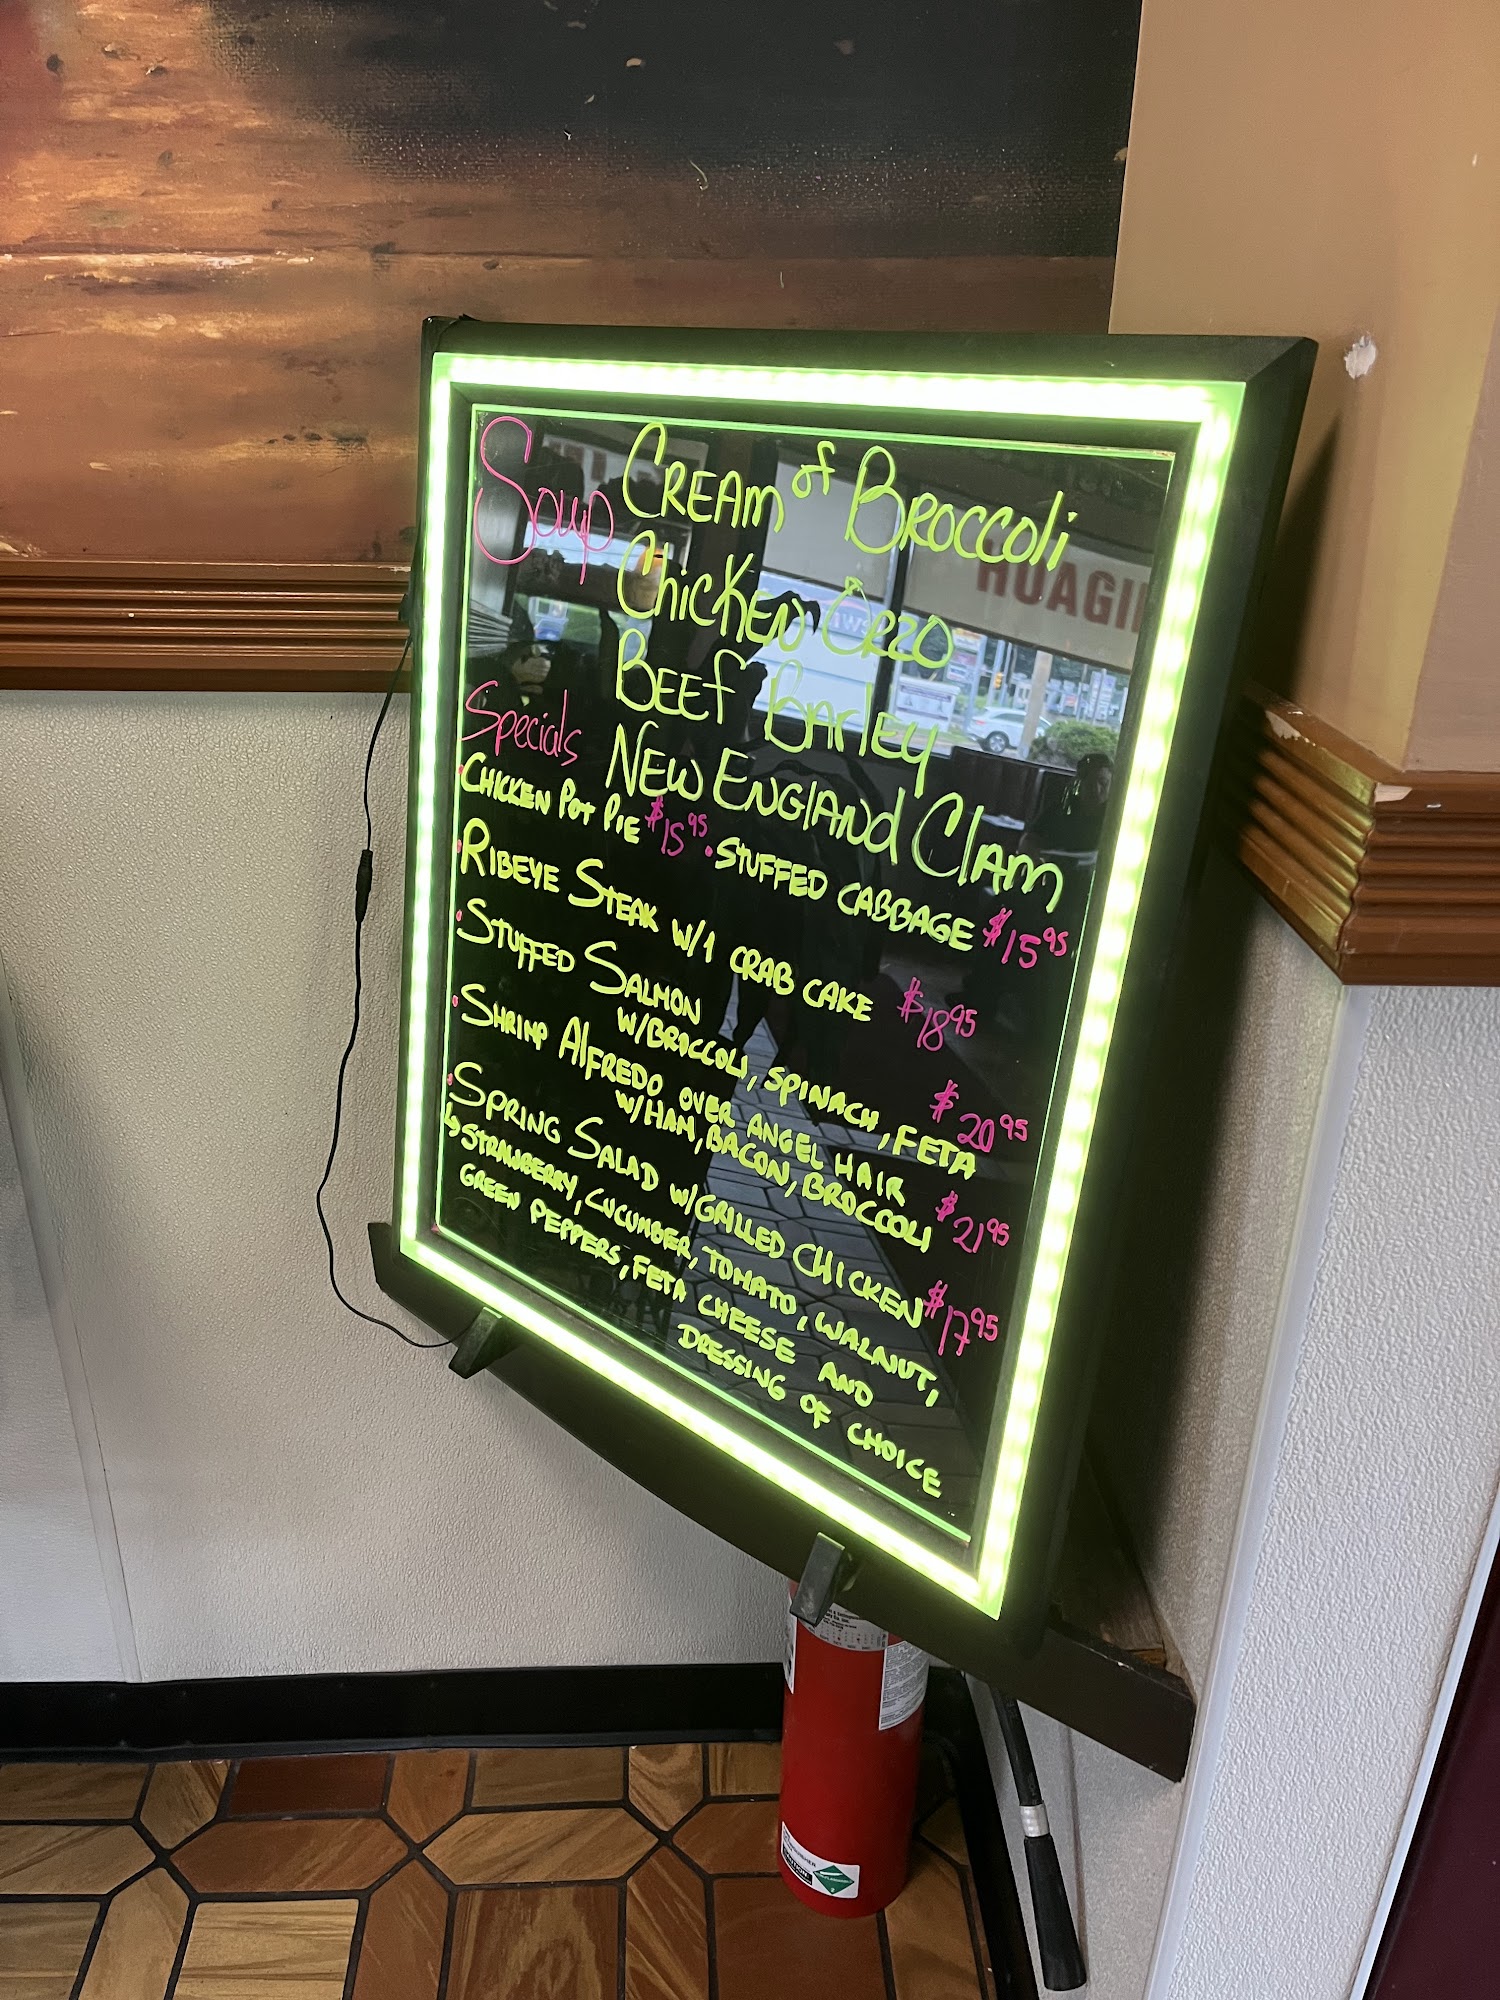 Soup CREAM of BROCCOLi
ChicKEN ORZO
BEEf BarlEy
NEW ENGlANd ClAM
Specials
•CHICKEN POT PIE $15 95 •STUFFED CABBAGE $15 95
•RIBEYE STEAK W/1 CRAB CAKE $18 95
•STUFFED SALMON
W/BROCCOLI, SPINACH, FETA $20 95
•SHRIMP AlFREDO OVER ANGEL HAIR
W/HAM, BACON, BROCCOLI $21 95
•SPRING SALAD W/GRILLED CHICKEN $17 95
↳STRAWBERRY, CUCUMBER, TOMATO, WALNUT,
GREEN PEPPERS, FETA CHEESE AND
DRESSING OF CHOICE